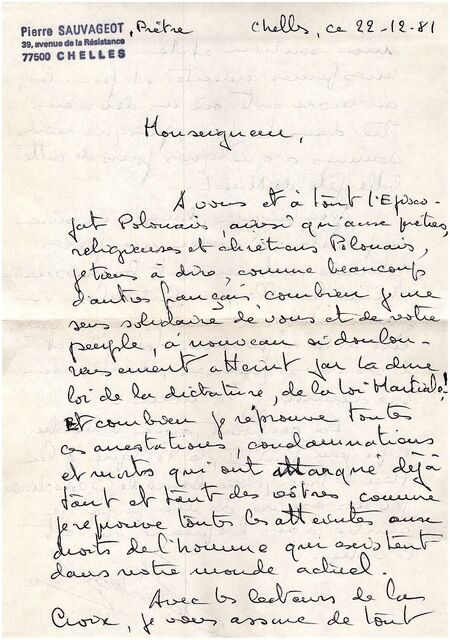 Pierre SAUVAGEOT, Prêtre
39, avenue de la Résistance
77500 CHELLES
Chelles, ce 22-12-81
Monseigneur,
A vous et à tout l'Episco-
pat Polonais, ainsi qu'aux prêtres,
religieuses et chrétiens Polonais,
je tiens à dire, comme beaucoup
d'autres français, combien je me
sens solidaire de vous et de votre
peuple, à nouveau si doulou-
reusement atteint par la dure
loi de la dictature, de la Loi Martiale!
Et combien je réprouve toutes
ces arrestations, condamnations
et morts qui ont attaqué déjà
tant et tant des vôtres, comme
je réprouve toutes les atteintes aux
droits de l'homme qui existent
dans notre monde actuel.
Avec les lecteurs de la
Croix, je vous assure de tout